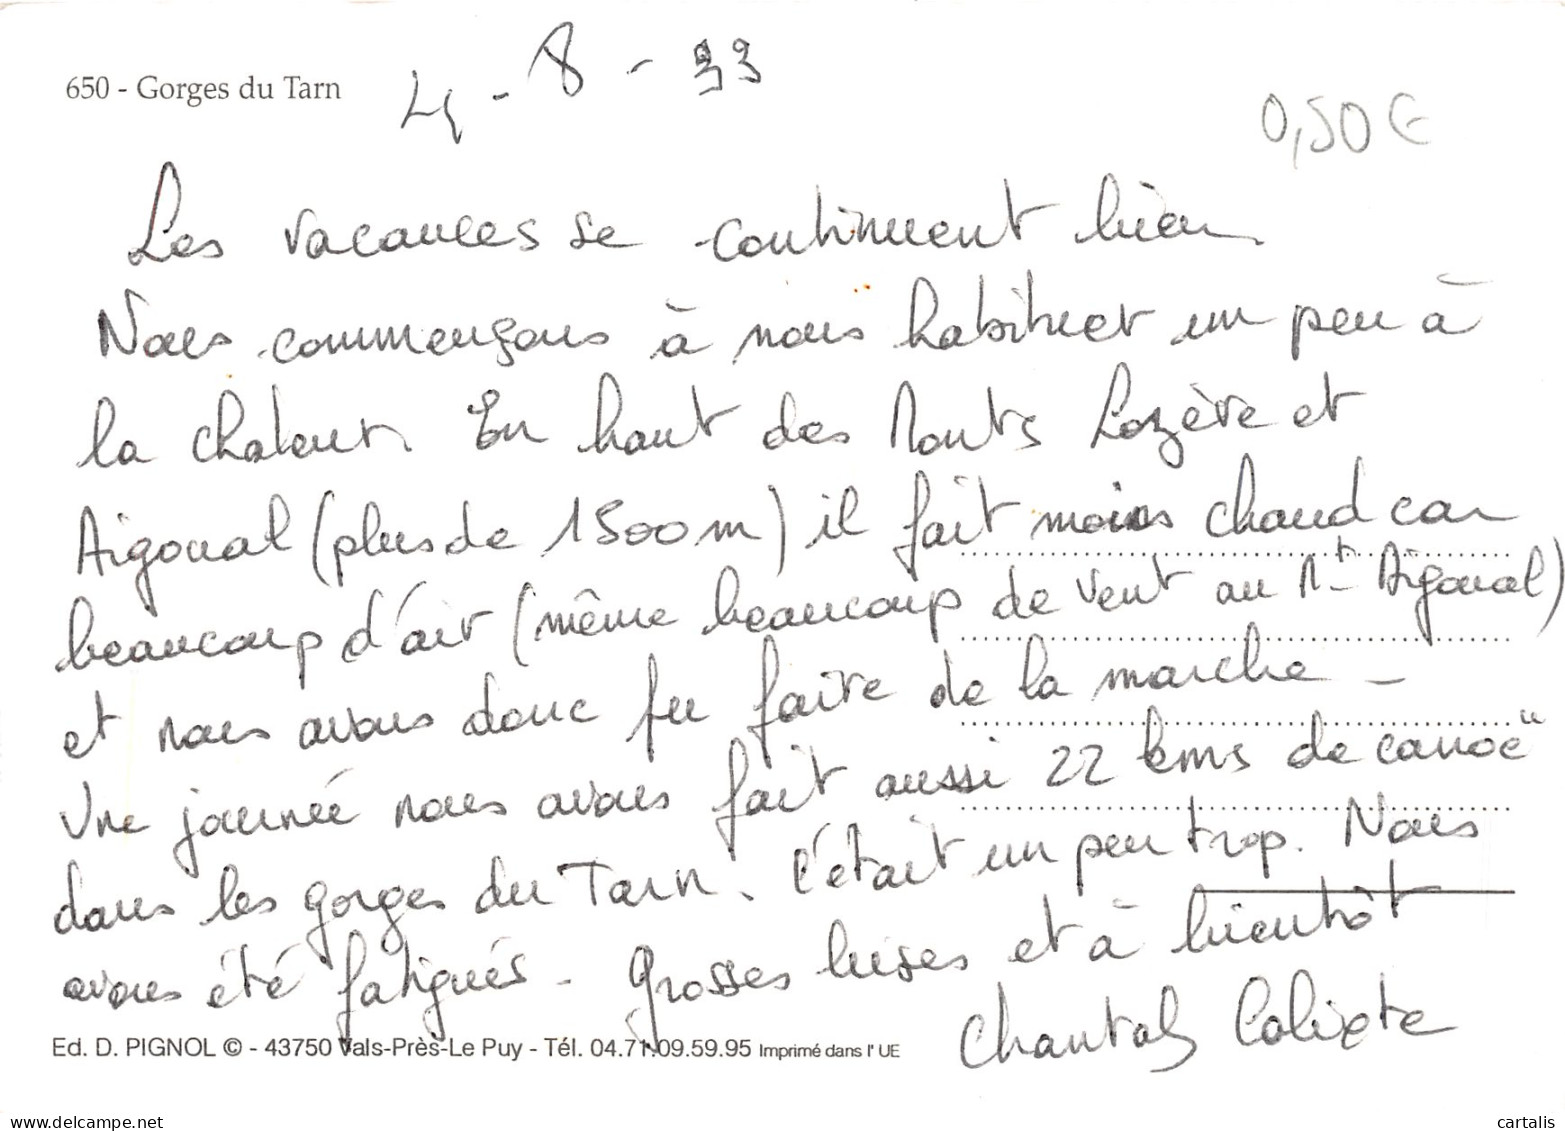 650 - Gorges du Tarn
4 - 8 - 99
0,50€
Les vacances se continuent bien.
Nous commençons à nous habituer un peu à
la chaleur. En haut des Monts Lozère et
Aigoual (plus de 1500m) il fait moins chaud car
beaucoup d'air (même beaucoup de vent au Mt Aigoual)
et nous avons donc pu faire de la marche -
Une journée nous avons fait aussi 22 kms de canoë
dans les gorges du Tarn. C'était un peu trop. Nous
avons été fatigués - Grosses bises et à bientôt
Chantal Calixte
Ed. D. PIGNOL © - 43750 Vals-Près-Le Puy - Tél. 04.71.09.59.95 Imprimé dans l' UE
www.delcampe.net
cartalis